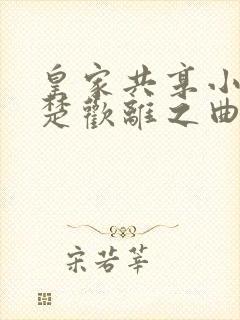 皇家共享小
楚歡離之曲
宋若莘